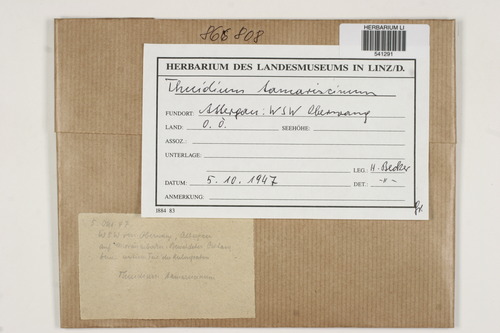 868808
HERBARIUM LI
541291
HERBARIUM DES LANDESMUSEUMS IN LINZ/D.
Thuidium tamariscinum
FUNDORT: Attergau: WSW Oberwang
LAND: O.Ö. SEEHÖHE:
ASSOZ.:
UNTERLAGE:
LEG.: H. Becker
DATUM: 5.10.1947 DET.: -"-
ANMERKUNG:
1884 83
WSW von Oberwang, Attergau
Thuidium tamariscinum